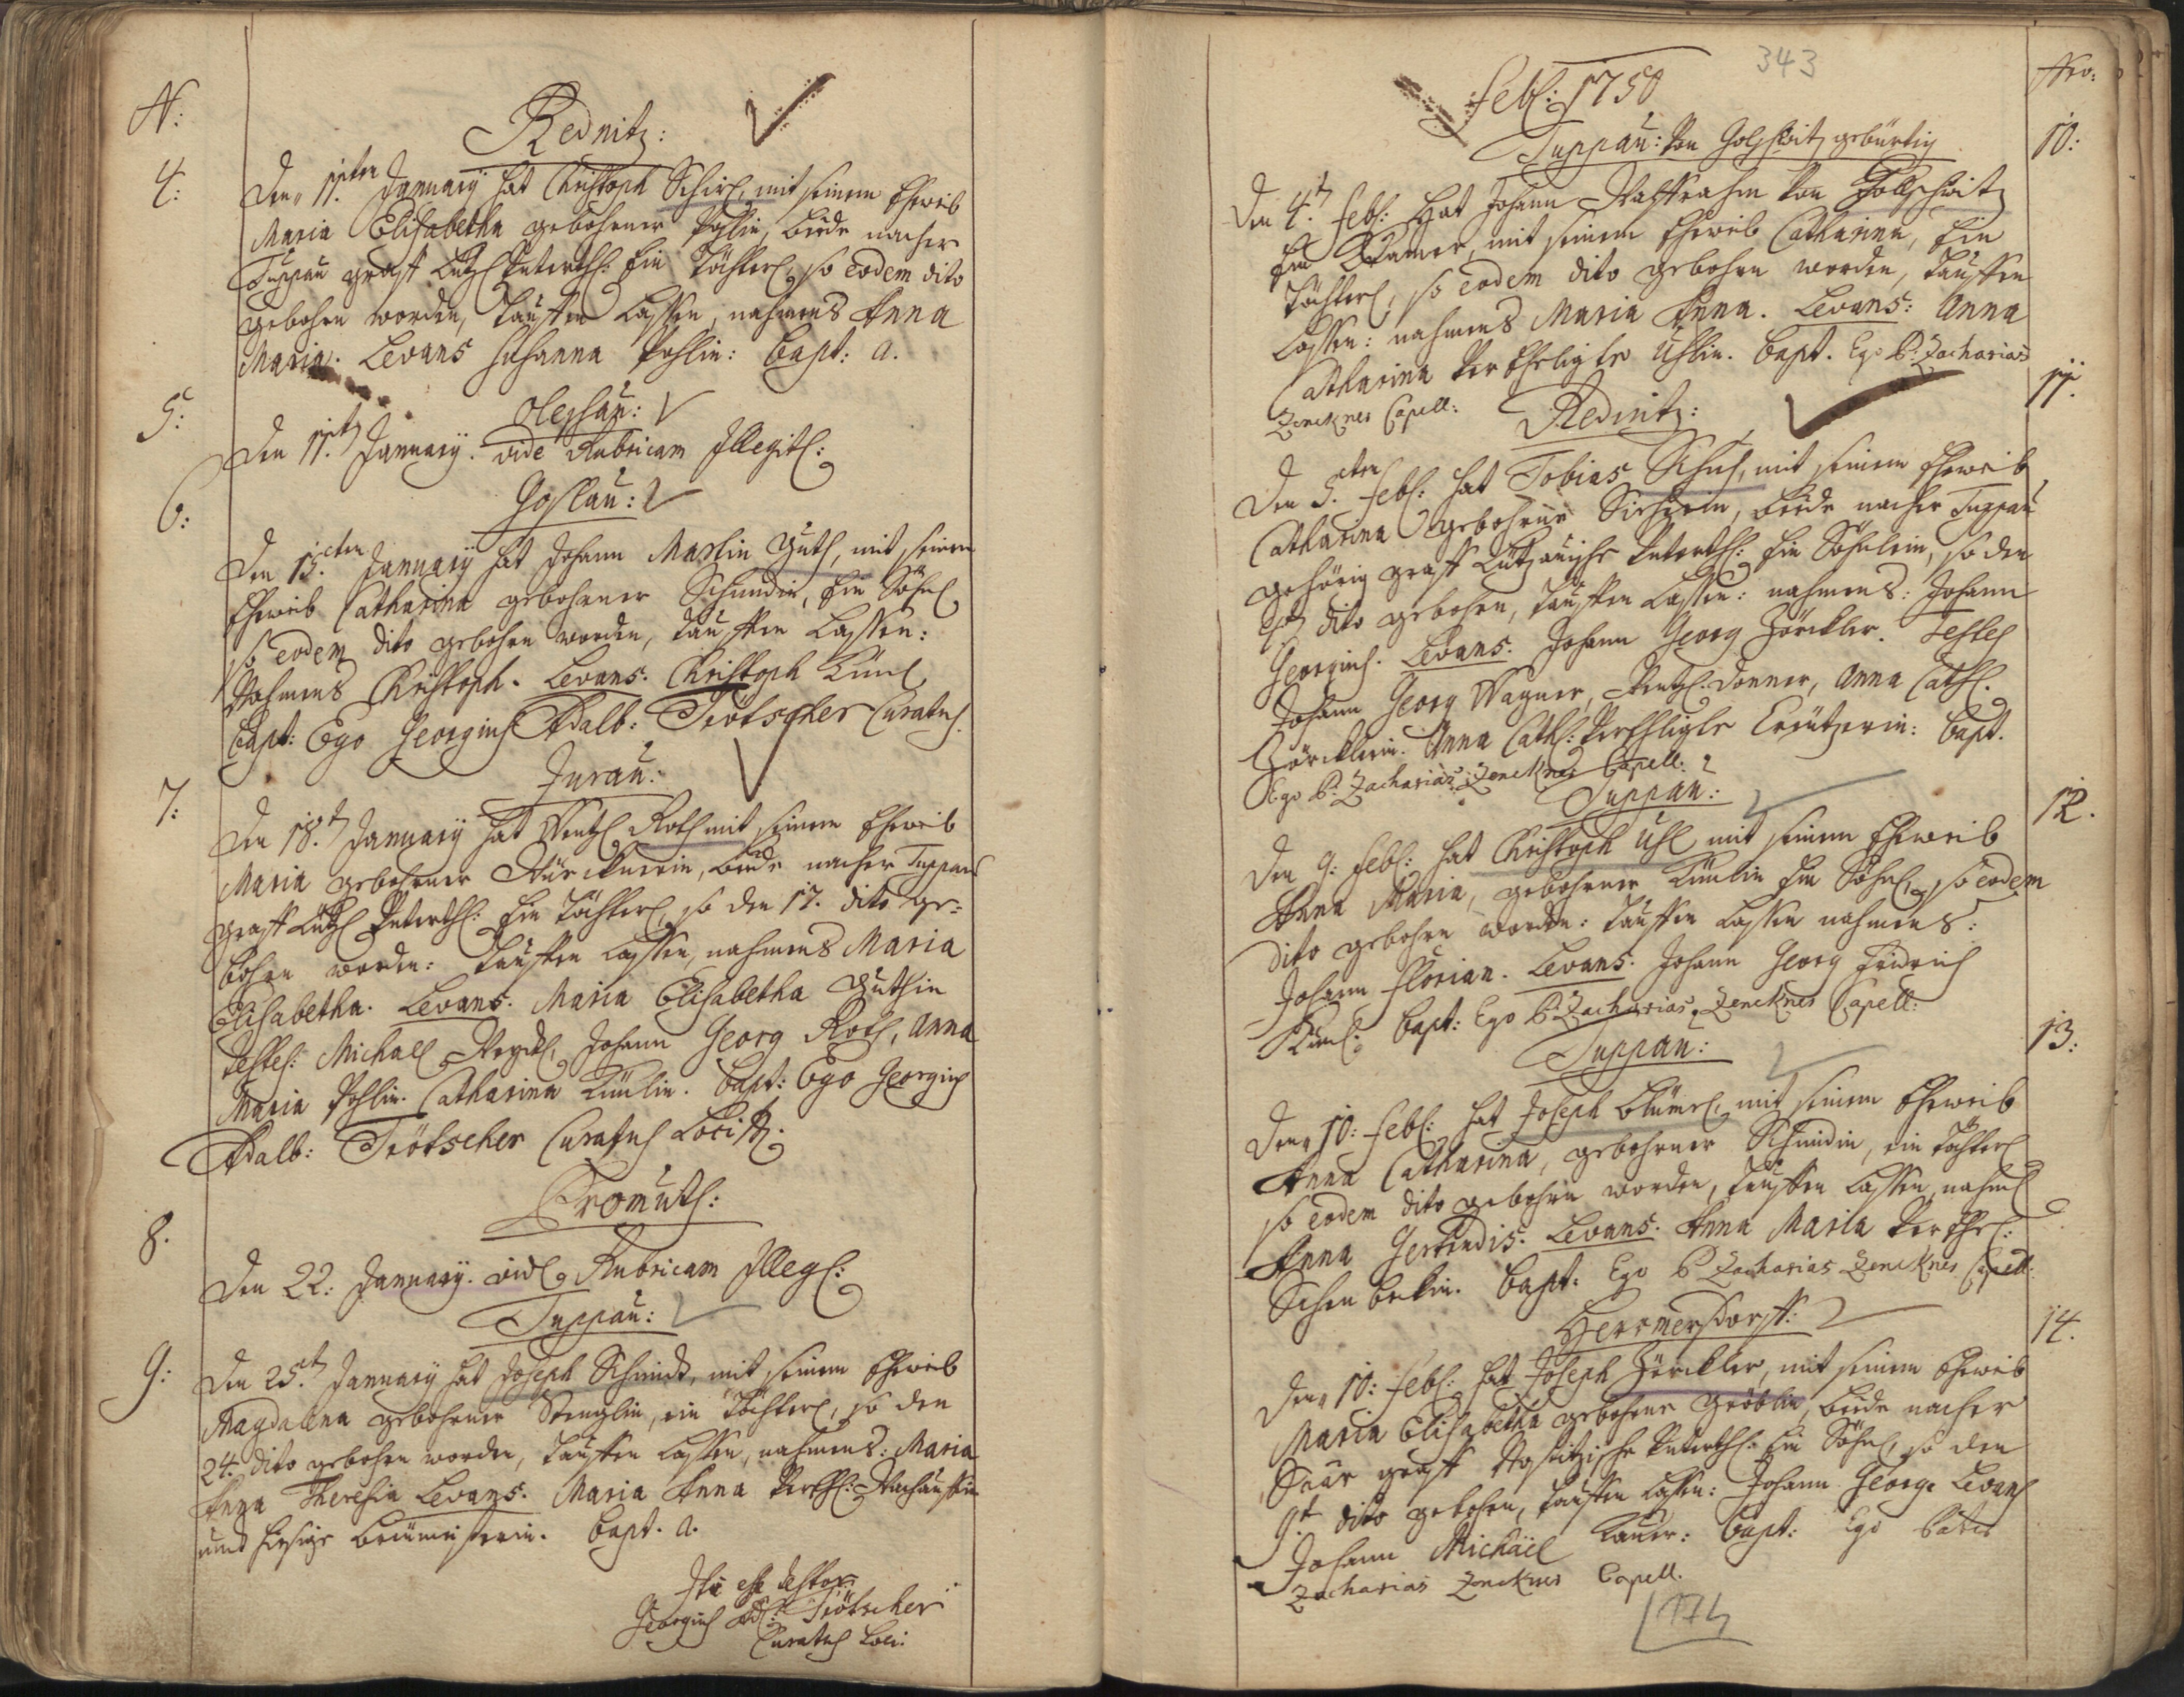 N:
Rednitz:
4:
Den 11.ten January hat Christoph Schirl, mit seinem Eheweib
Maria Elisabetha gebohrner Pohlin, beede nacher
Tuppau gräfl. Lütz: Unterth: Ein Töchterl, so eodem dito
gebohren worden, tauffen lassen, nahmens Anna
Maria. Levans Susanna Pohlin: bapt: a.
5:
Oleschau:
Den 11.t January. vide Rubricam Illegit:
6:
Goslau:
Den 15.ten January hat Johann Martin Guth, mit seinem
Eheweib Catharina gebohrner Schmidin, Ein Söhnl
so eodem dito gebohren worden, tauffen lassen:
Nahmens Christoph. Levans. Christoph
Bapt: Ego Georgius Adalb: Trötscher Curatus.
7:
Jurau:
Den 18.t January hat Wentzl Roth mit seinem Eheweib
Maria gebohrner, beede nacher Tuppau
gräfl. Lütz: Unterth: Ein Töchterl, so den 17. dito ge=
bohren worden: tauffen lassen, nahmens Maria
Elisabetha. Levans. Maria Elisabetha Guthin
Testes: Michael Johann Georg Roth, Anna
Maria Pohlin. Catharina bapt: Ego Georgius
Adalb: Trötscher Curatus Loci
Promuth:
8.
Den 22. January. vide Rubricam Illeg:
Tuppau:
9:
Den 25.t January hat Joseph Schmidt, mit seinem Eheweib
Magdalena gebohrner Stenglin, ein Töchterl, so den
24. dito gebohren worden, tauffen lassen, nahmens: Maria
Anna Theresia Levans. Maria Anna Vereh:
und hiesige bapt. a.
Ita est testor
Georgius Ad: Trötscher
Curatus Loci
343
Febr: 1750
Nro:
Tuppau: von gebürtig
10:
Den 4.t Febr: Hat Johann von
Ein mit seinem Eheweib Catharina, Ein
Töchterl, so eodem dito gebohren worden, tauffen
lassen: nahmens Maria Anna. Levans: Anna
Catharina Verehligte Uhlin. bapt. Ego P: Zacharias
Zenckner Capell:
Rednitz:
11.
Den 5.ten Febr: hat Tobias Schuh, mit seinem Eheweib
Catharina gebohrne, beede nacher Tuppau
gehörig gräfl. Lützauische Unterth: Ein Söhnlein, so den
dito gebohren, tauffen lassen: nahmens: Johann
Georgius. Levans. Johann Georg Zörckler. Testes
Johann Georg Wagner, Wentzl Donner, Anna Cath:
Zörcklerin. Anna Cath: Verehligte Creützerin: bapt.
Ego P: Zacharias Zenckner Capell:
Tuppau:
12.
Den 9: Febr: hat Christoph Uhl mit seinem Eheweib
Anna Maria, gebohrner Ein Söhnl, so eodem
dito gebohren worden: tauffen lassen nahmens:
Johann Florian. Levans. Johann Georg Fridrich
bapt: Ego P: Zacharias Zenckner Capell:
Tuppau:
13:
Den 10: Febr: hat Joseph Blümel, mit seinem Eheweib
Anna Catharina, gebohrner Schmidin, ein Töchterl
so eodem dito gebohren worden, tauffen lassen, nahmens
Anna Gertrudis. Levans. Anna Maria Verehl:
bapt: Ego P Zacharias Zenckner Capell:
Hermersdorff:
14.
Den 10: Febr: hat Joseph Zörckler, mit seinem Eheweib
Maria Elisabetha gebohrne Gröblin, beede nacher
Saar gräfl. Nostitzische Unterth: Ein Söhnl, so den
9.t dito gebohren, tauffen lassen: Johann George Levans
Johann Michäel Bauer: bapt: Ego Pater
Zacharias Zenckner Capell.
174